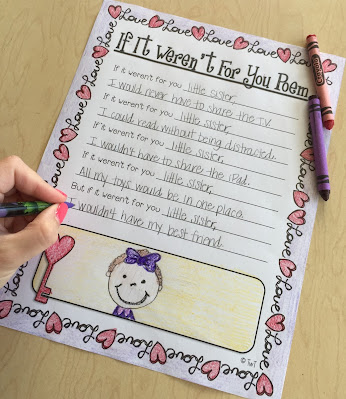 If It Weren't For You Poem
If it weren't for you little sister,
I would never have to share the TV.
If it weren't for you little sister,
I could read without being distracted.
If it weren't for you little sister,
I wouldn't have to share the iPad.
If it weren't for you little sister,
All my toys would be in one place.
But if it weren't for you little sister,
I wouldn't have my best friend.